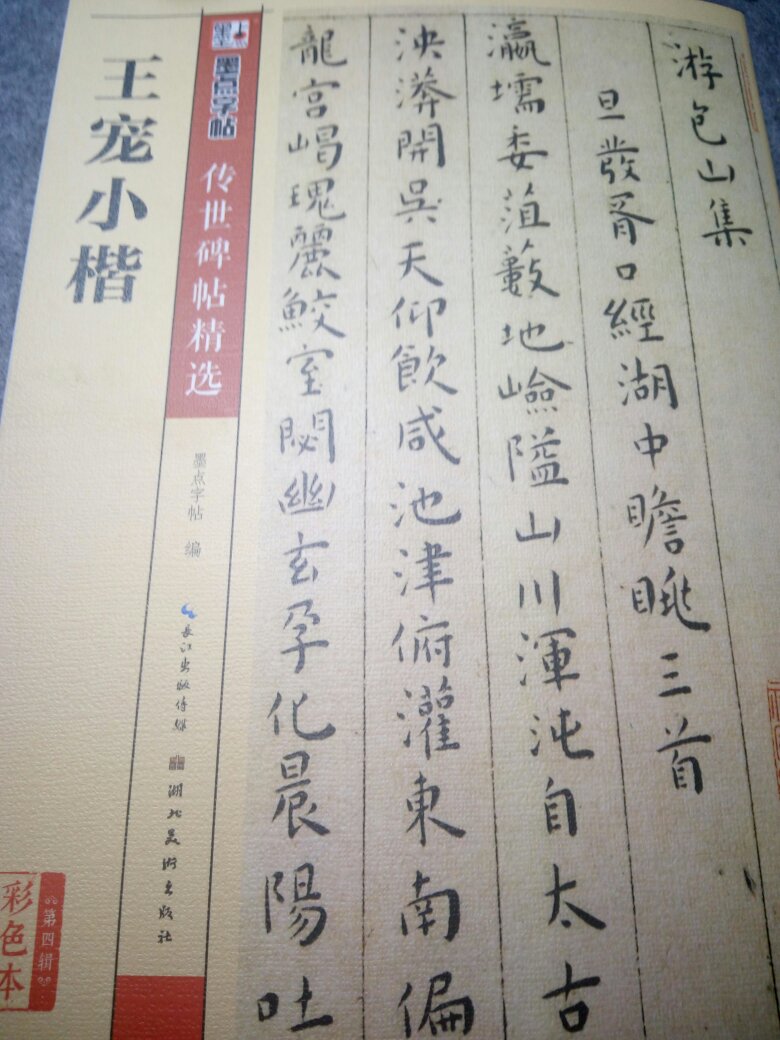 游包山集
旦發胥口經湖中瞻眺三首
瀛壖委菹藪地嶮隘山川渾沌自太古
泱漭開吳天仰飲咸池津俯灌東南偏
龍宮崵瑰麗鮫室閟幽玄孕化晨陽吐
墨点字帖
传世碑帖精选
墨点字帖 编
长江出版传媒
湖北美术出版社
王宠小楷
彩色本
第四辑